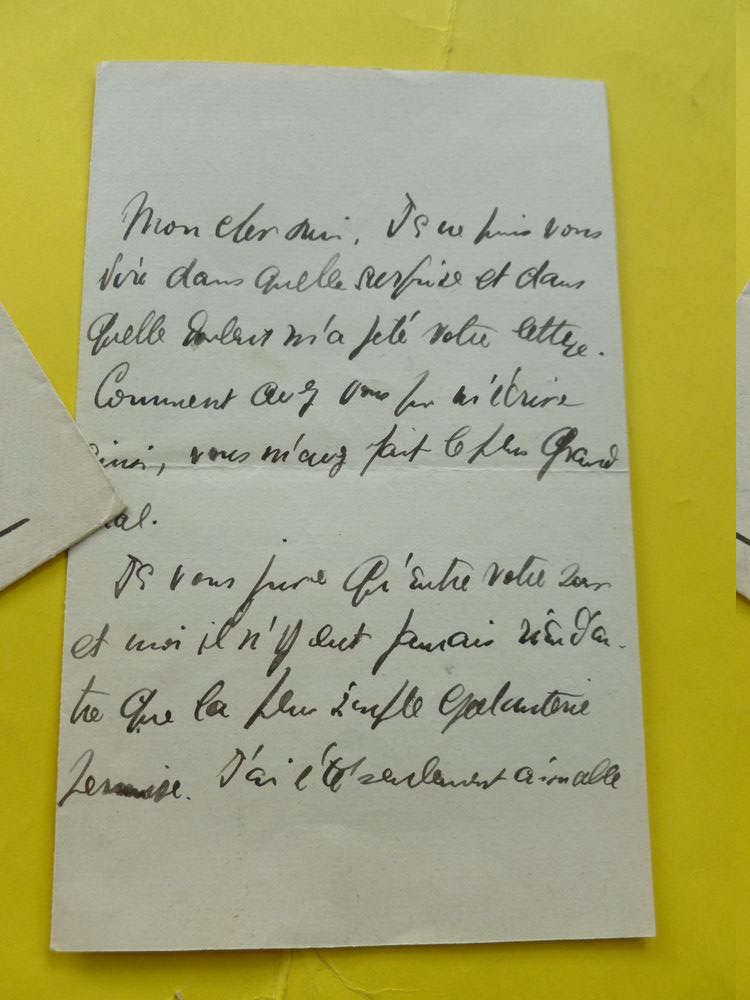 Mon cher ami, Je ne puis vous
dire dans quelle surprise et dans
quelle douleur m'a jeté votre lettre.
Comment avez vous pu m'écrire
ainsi, vous m'avez fait le plus grand
mal.
Je vous jure qu'entre votre
et moi il n'y eut jamais rien d'au-
tre que la plus simple galanterie
permise. J'ai été seulement aimable